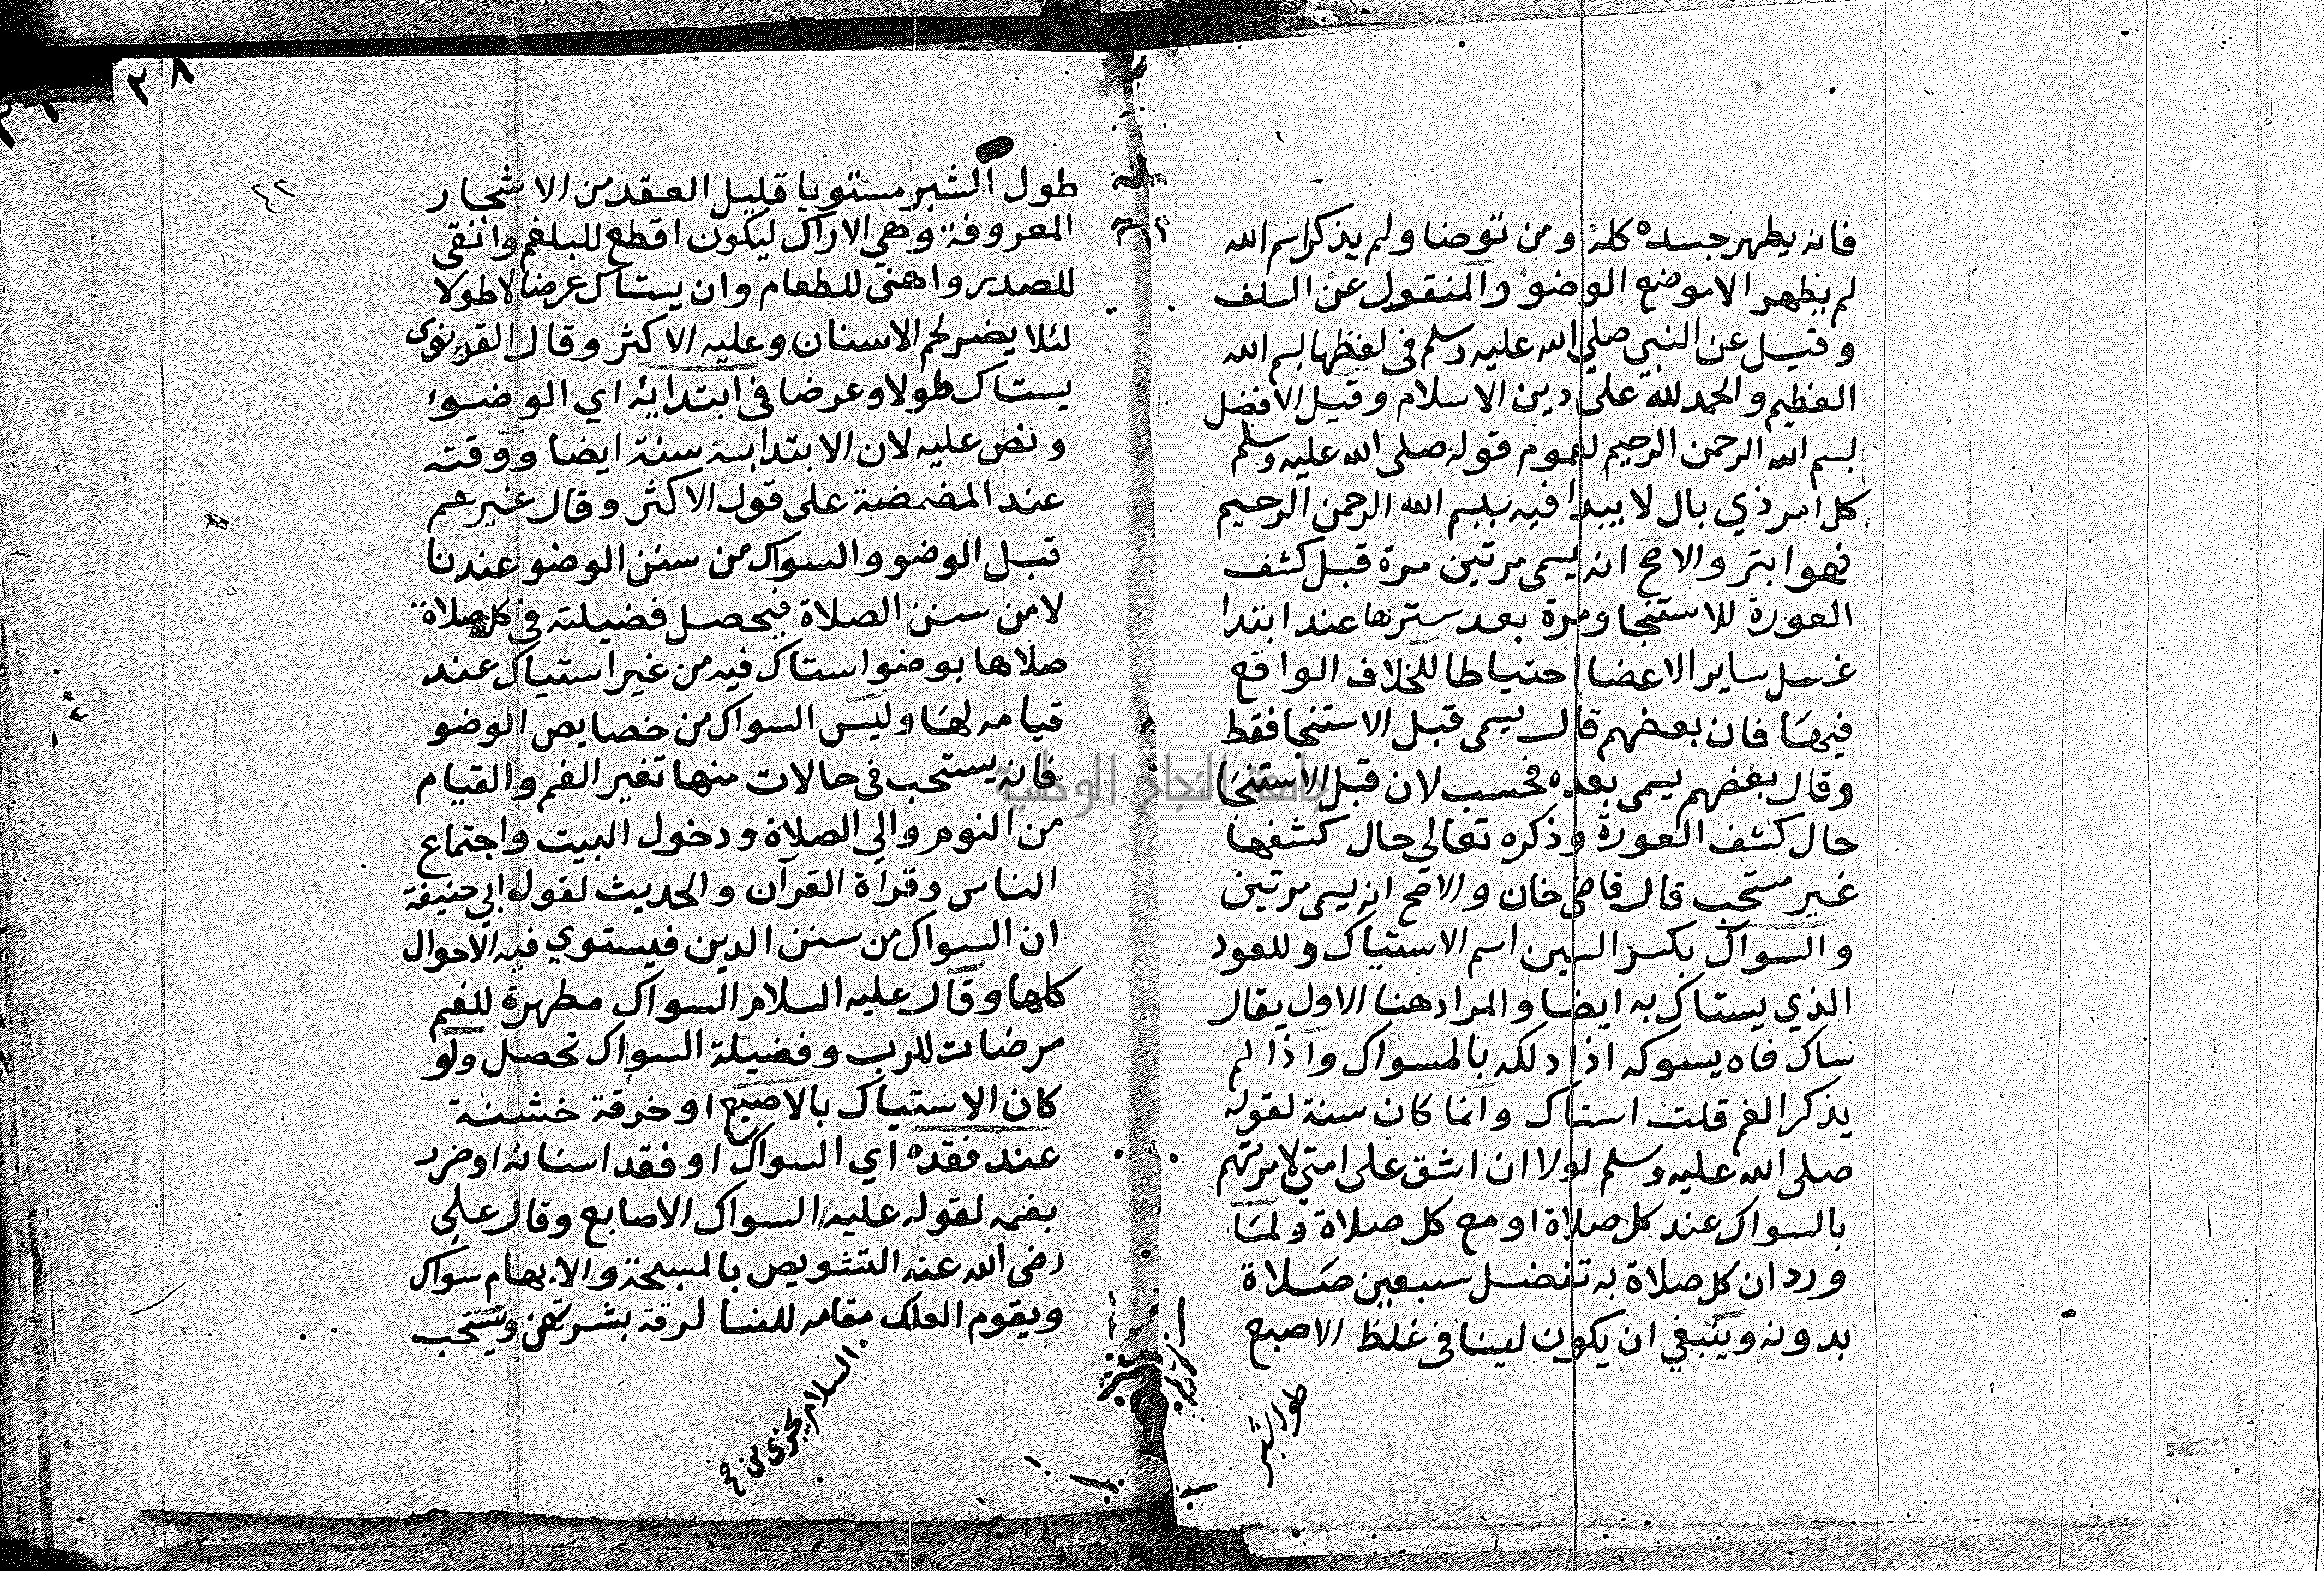 فانه يطهر جسده كله ومن توضا ولم يذكر اسم الله
لم يطهر الا موضع الوضو والمنقول عن السلف
وقيل عن النبي صلي الله عليه وسلم في لفظها بسم الله
العظيم والحمد لله على دين الاسلام وقيل الافضل
بسم الله الرحمن الرحيم لعموم قوله صلى الله عليه وسلم
كل امر ذي بال لا يبدا فيه ببسم الله الرحمن الرحيم
فهو ابتر والاصح انه يسمى مرتين مرة قبل كشف
العورة للاستنجا ومرة بعد سترها عند ابتدا
غسل ساير الاعضا احتياطا للخلاف الواقع
فيها فان بعضهم قال يسمى قبل الاستنجا فقط
وقال بعضهم يسمى بعده فحسب لان قبل الاستنجا
حال كشف العورة وذكره تعالي حال كشفها
غير مستحب قال قاضي خان والاصح انه يسمى مرتين
والسواك بكسر السين اسم الاستياك وللعود
الذي يستاك به ايضا والمراد هنا الاول يقال
ساك فاه يسوكه اذا دلكه بالمسواك واذا لم
يذكر الفم قلت استاك وانما كان سنة لقوله
صلى الله عليه وسلم لولا ان اشق على امتي لامرتهم
بالسواك عند كل صلاة او مع كل صلاة ولما
ورد ان كل صلاة به تفضل سبعين صلاة
بدونه وينبغي ان يكون لينا في غلظ الاصبع
طول الشبر
٣٨
٤٢
طول الشبر مستويا قليل العقد من الاشجار
المعروفة وهي الاراك ليكون اقطع للبلغم وانقى
للصدر واهنى للطعام وان يستاك عرضا لا طولا
لئلا يضر لحم الاسنان وعليه الاكثر وقال الغزنوى
يستاك طولا وعرضا في ابتدايه اي الوضوء
ونص عليه لان الابتدا به سنة ايضا ووقته
عند المضمضة على قول الاكثر وقال غيرهم
قبل الوضو والسواك من سنن الوضو عندنا
لا من سنن الصلاة فيحصل فضيلته في كل صلاة
صلاها بوضو استاك فيه من غير استياك عند
قيامه لها وليس السواك من خصايص الوضو
فانه يستحب في حالات منها تغير الفم والقيام
من النوم والي الصلاة ودخول البيت واجتماع
الناس وقراة القرآن والحديث لقول ابي حنيفة
ان السواك من سنن الدين فيستوي فيه الاحوال
كلها وقال عليه السلام السواك مطهرة للفم
مرضات للرب وفضيلة السواك تحصل ولو
كان الاستياك بالاصبع او خرقة خشنة
عند فقده اي السواك او فقد اسنانه او ضرر
بفمه لقوله عليه السواك الاصابع وقال علي
رضى الله عنه التشويص بالمسبحة والابهام سواك
ويقوم العلك مقامه للنسا لرقة بشرتهن ويستحب
السلام يجزى من
جامعة النجاح الوطنية